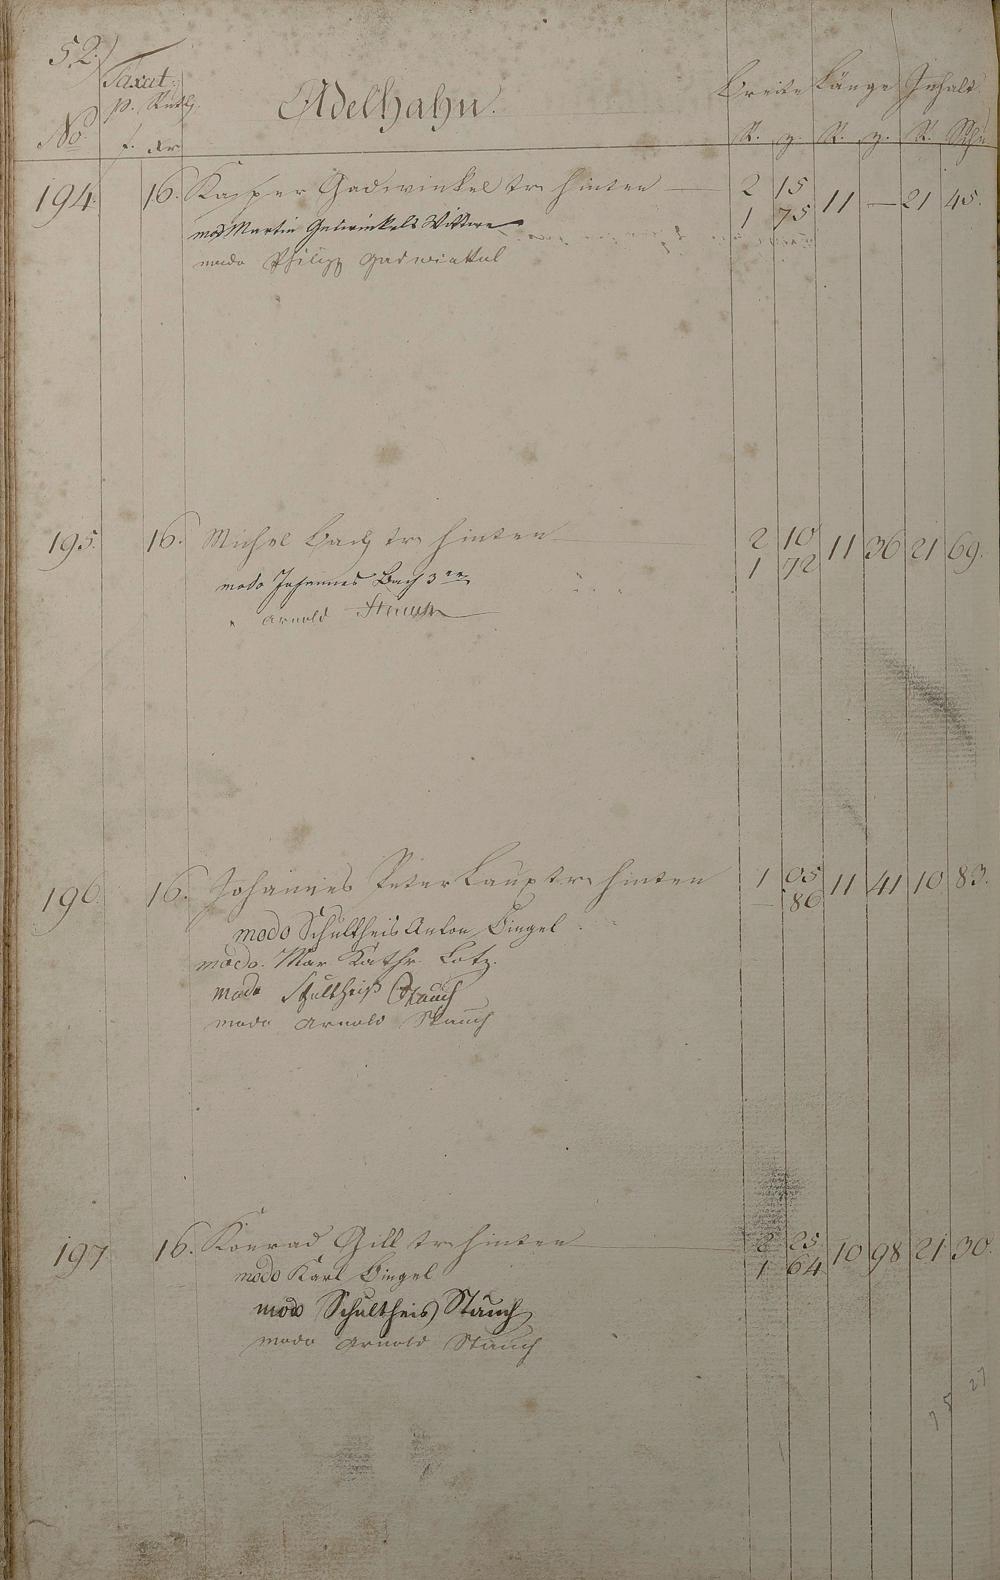 52.
Taxat.
p. Ruth.
Adelhahn.
Breite Länge Inhalt
No. f. xr R. z. R. z. R. Schu
194. 16. Kasper Gadwinkel tr. hinten 2 15 11 — 21 45.
1 75
modo Martin Gadwinkels Wittwe
modo Philipp Gadwinkel
195. 16. Michel Bach tr. hinten 2 10 11 36 21 69.
1 72
modo Johannes Bach 3ter
" Arnold Stauch
196. 16. Johannes Peter Laup tr. hinten 1 05 11 41 10 83.
— 86
modo Schultheis Anton Dingel
modo. Mar Kathr. Lotz.
modo Schultheiß Stauch
modo Arnold Stauch
197 16. Konrad Gill tr. hinten 2 25 10 98 21 30.
1 64
modo Karl Dingel
modo Schultheis Stauch
modo Arnold Stauch